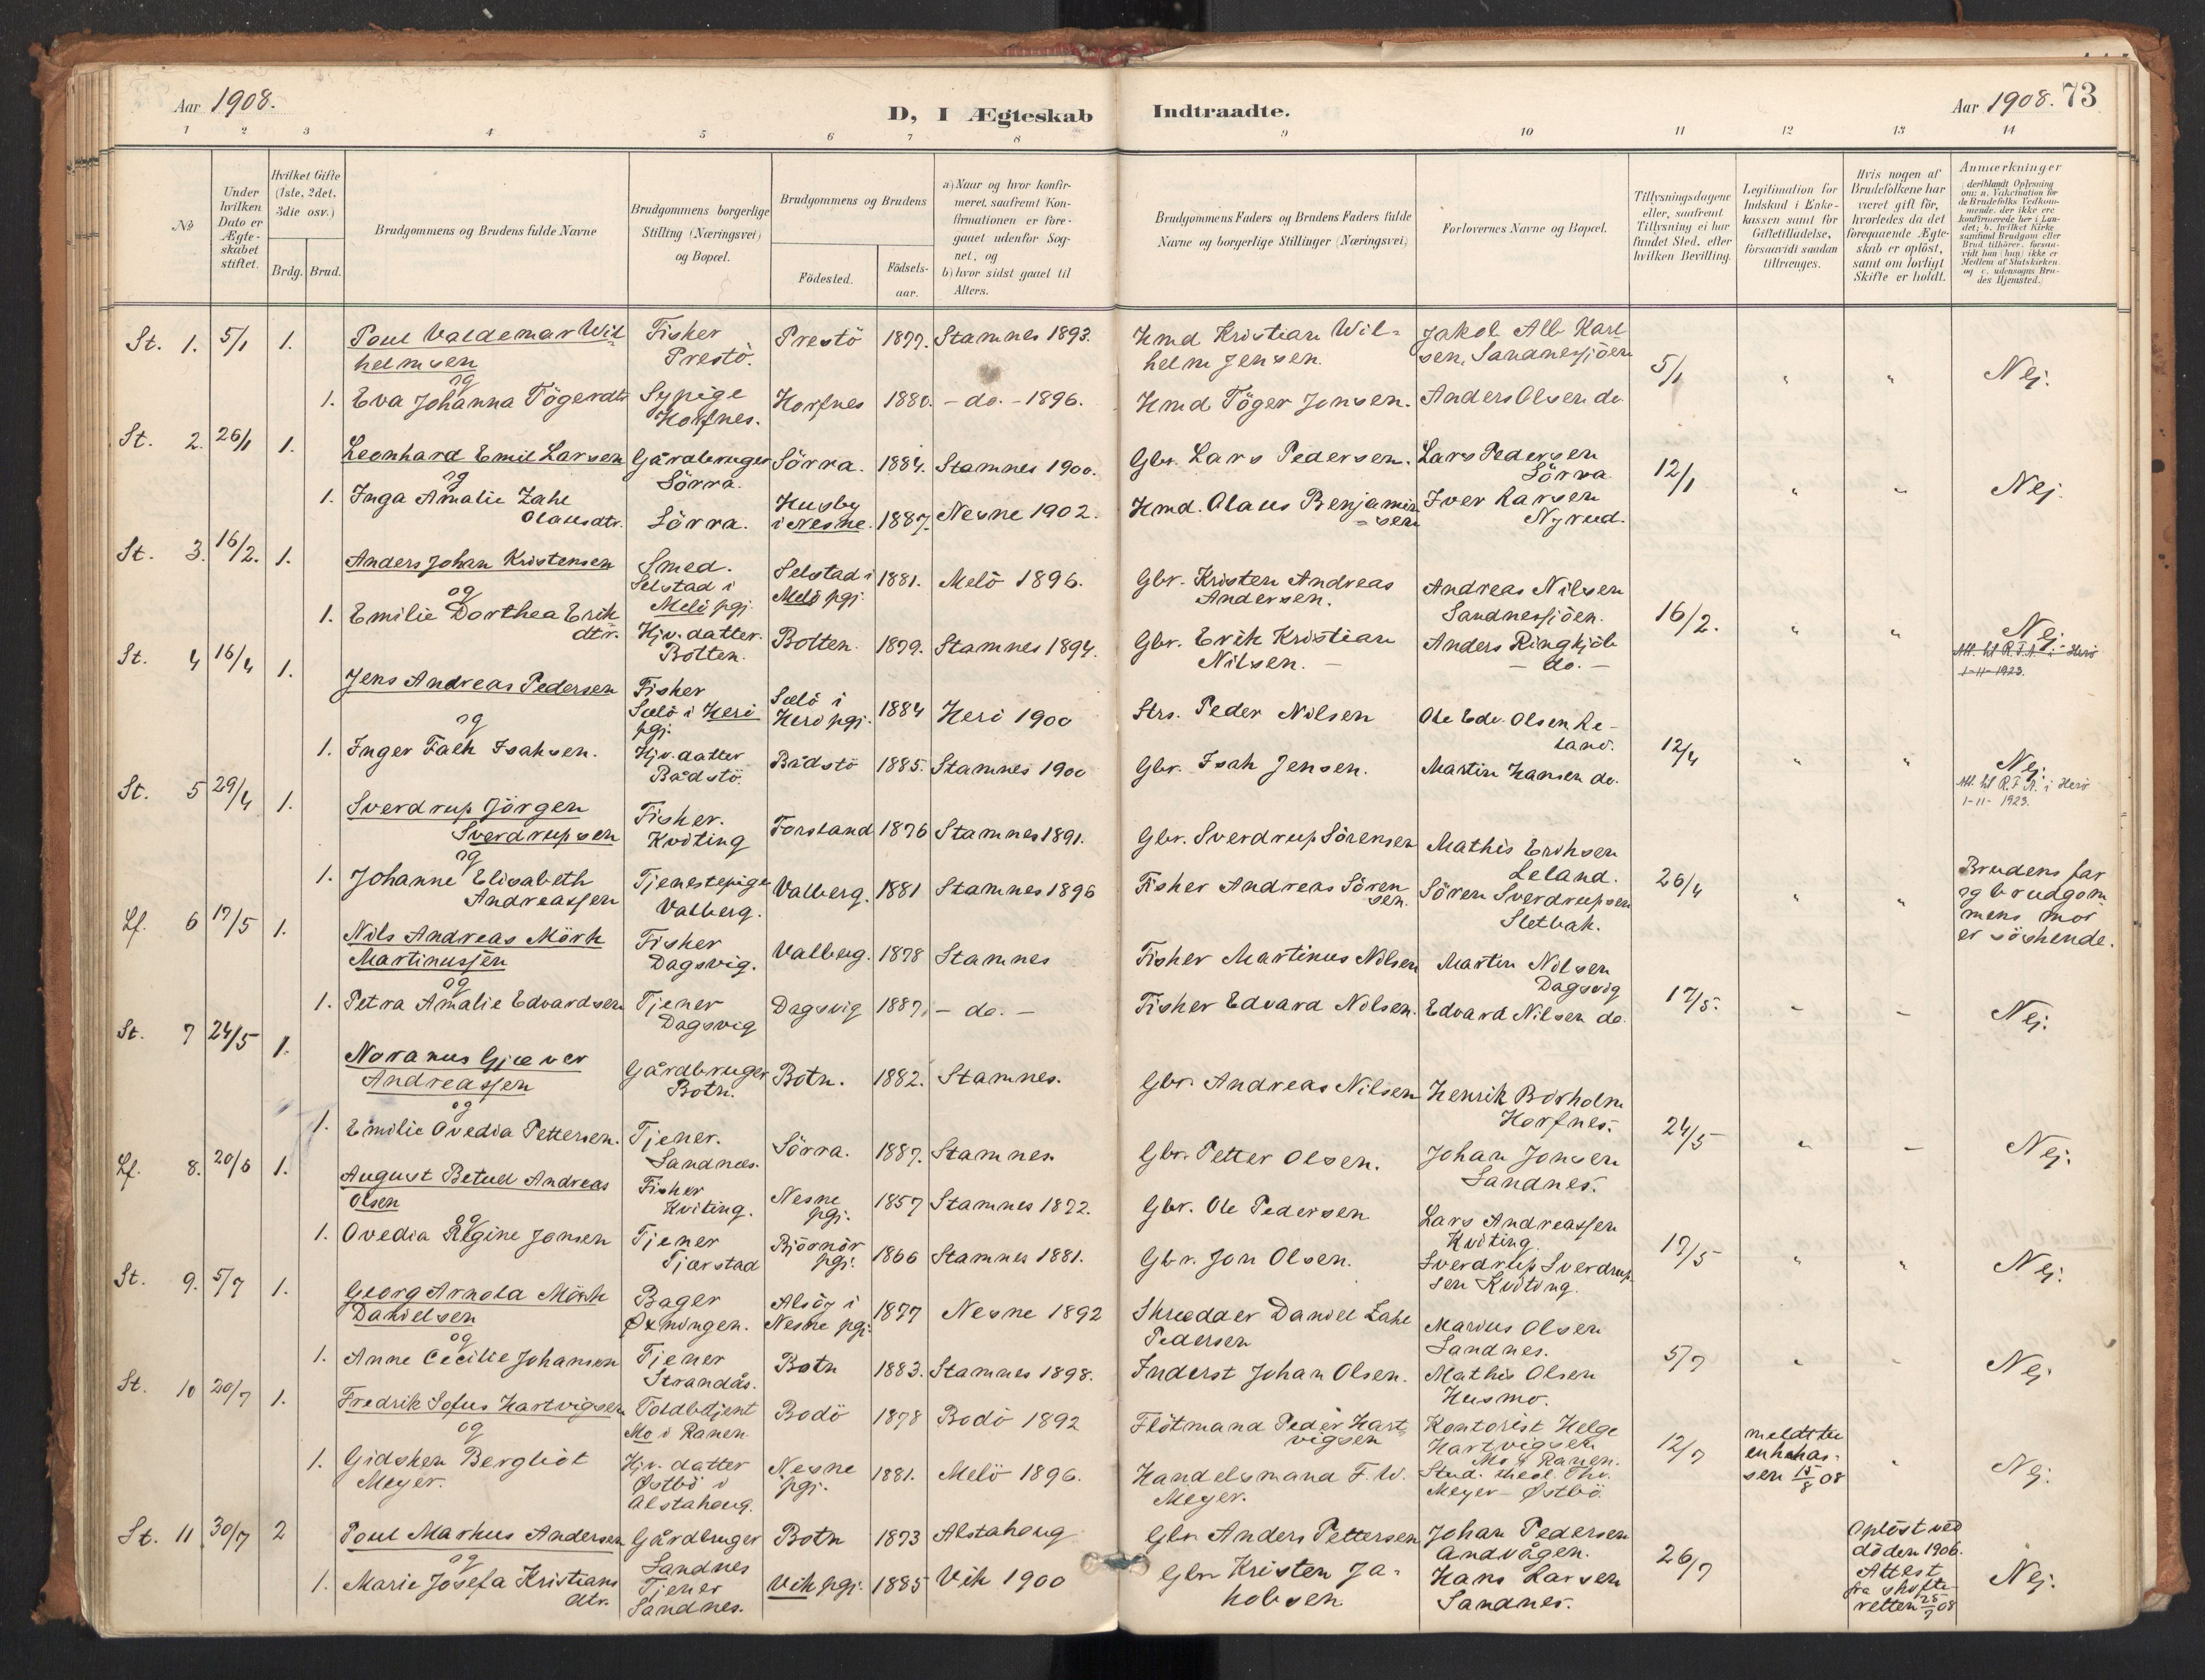 Aar 1908.
D, I Ægteskab Indtraadte.
Aar 1908. 73
1 2 3 4 5 6 7 8 9 10 11 12 13 14
No
Under hvilken Dato er Ægteskabet stiftet.
Hvilket Gifte (1ste, 2det, 3die osv.)
Brdg. Brud.
Brudgommens og Brudens fulde Navne
Brudgommens borgerlige Stilling (Næringsvei) og Bopæl.
Brudgommens og Brudens
Fødested.
Fødsels-aar.
a) Naar og hvor konfirmeret, saafremt Konfirmationen er foregaaet udenfor Sognet, og
b) hvor sidst gaaet til Alters.
Brudgommens Faders og Brudens Faders fulde Navne og borgerlige Stillinger (Næringsvei)
Forlovernes Navne og Bopæl.
Tillysningsdagene eller, saafremt Tillysning ei har fundet Sted, efter hvilken Bevilling.
Legitimation for Indskud i Enkekassen samt for Giftetilladelse, forsaavidt saadan tiltrænges.
Hvis nogen af Brudefolkene har været gift før, hvorledes da det foregaaende Ægteskab er opløst, samt om lovligt Skifte er holdt.
Anmærkninger
(deriblandt Oplysning om: a. Vakcination for de Brudefolks Vedkommende, der ikke ere konfirmerede her i Landet; b. hvilket Kirkesamfund Brudgom eller Brud tilhører, forsaavidt han (hun) ikke er Medlem af Statskirken, og c. udensogns Brudes Hjemsted.)
St. 1. 5/1 1. Poul Valdemar Wilhelmsen Fisker Prestö. Prestö 1877. Stamnes 1893. Hmd Kristian Wilhelm Jensen. Jakob Alb Karlsen, Sandnessjöen 5/1 " " Nej.
og
1. Eva Johanna Tögersdtr Sypige Horfnes. Horfnes 1880. - do. - 1896. Hmd Töger Jonsen. Anders Olsen do
St. 2. 26/1 1. Leonhard Emil Larsen Gårdbruger Sörra. Sörra. 1884. Stamnes 1900. Gbr. Lars Pedersen. Lars Pedersen Sörra. 12/1 " " Nej.
og
1. Inga Amalie Zahl Olausdtr. Sörra. Husby i Nesne. 1887. Nesne 1902. Hmd. Olaus Benjaminsen Iver Larsen Nyrud.
St. 3. 16/2. 1. Anders Johan Kristensen Smed. Selstad i Melö pgj. Selstad i Melö pgj. 1881. Melö 1896. Gbr. Kristen Andreas Andersen. Andreas Nilsen Sandnessjöen. 16/2. " " Nej.
og
1. Emilie Dorthea Erikdtr. Hjv. datter. Botten. Botten. 1879. Stamnes 1894. Gbr. Erik Kristian Nilsen. - Anders Ringkjöb - do. -
Att. til R.T.A. i Herö 1-11-1923.
St. 4 16/4 1. Jens Andreas Pedersen Fisker Sælö i Herö pgj. Sælö i Herö pgj. 1884 Herö 1900 Strs. Peder Nilsen Ole Edv. Olsen Leland. 12/4 " " Nej.
og
1. Inger Falk Isaksen. Hjv. datter Bådstö. Bådstö 1885. Stamnes 1900 Gbr. Isak Jensen. Martin Hansen do.
Att. til R.T.A. i Herö 1-11-1923.
St. 5 29/4 1. Sverdrup Jörgen Sverdrupsen Fisker. Kviting Forsland 1876 Stamnes 1891. Gbr. Sverdrup Sörensen Mathis Eriksen Leland. 26/4 " "
og
1. Johanne Elisabeth Andreassen Tjenestepige Valberg. Valberg. 1881 Stamnes 1896 Fisker Andreas Sörensen. Sören Sverdrupsen Sletbak.
Brudens far og brudgommens mor er söskende.
Lf. 6 17/5 1. Nils Andreas Mörk Martinussen Fisker Dagsvig. Valberg. 1878 Stamnes Fisker Martinus Nilsen Martin Nilsen Dagsvig 17/5. - - Nej.
og
1. Petra Amalie Edvardsen Tjener Dagsvig Dagsvig 1887. - do. - Fisker Edvard Nilsen. Edvard Nilsen do.
St. 7 24/5 1. Noranus Gjæver Andreassen Gårdbruger Botn. Botn. 1882. Stamnes. Gbr. Andreas Nilsen Henrik Borholm Horfnes. 24/5 " - Nej.
og
1. Emilie Ovedia Pettersen. Tjener. Sandnes. Sörra. 1887. Stamnes. Gbr. Petter Olsen. Johan Jonsen Sandnes.
Lf. 8. 20/6 1. August Betuel Andreas Olsen Fisker Kviting. Nesne pgj. 1857 Stamnes 1872. Gbr. Ole Pedersen Lars Andreassen Kviting. 17/5 " " Nej.
og
1. Ovedia Regine Jonsen Tjener Tjærstad Björnör pgj. 1866 Stamnes 1881. Gbr. Jon Olsen. Sverdrup Sverdrupsen Kviting.
St. 9. 5/7 1. Georg Arnold Mörk Danielsen Bager Øxningen. Alsöy i Nesne pgj. 1877 Nesne 1892 Skrædder Daniel Zahl Pedersen Marius Olsen Sandnes. 5/7 " " Nej.
og
1. Anne Cecilie Johansen Tjener Strandås. Botn 1883. Stamnes 1898. Inderst Johan Olsen. Mathis Olsen Husmo.
St. 10 20/7 1. Fredrik Sofus Hartvigsen Toldbetjent Mo i Ranen. Bodö 1878 Bodö 1892 Flötmand Peder Hartvigsen Kontorist Helge Hartvigsen Mo i Ranen. 12/7 meldt til enkekassen 15/8 08 " Nej.
og
1. Gidsken Bergliot Meyer. Hjv. datter Østbö i Alstahoug. Nesne pgj. 1881. Melö 1896. Handelsmand F. W. Meyer. Stud. theol. Thv. Meyer - Østbö.
St. 11. 30/7 2 Poul Markus Andersen Gårdbruger Sandnes Botn 1873 Alstahoug Gbr Anders Pettersen Johan Pedersen Andvågen. 26/7 Oplöst ved döden 1906. Attest fra skifteretten 25/7 08 Nej.
og
1. Marie Josefa Kristiansdtr. Tjener Sandnes. Vik pgj. 1885 Vik 1900 Gbr Kristen Jakobsen Hans Larsen Sandnes.